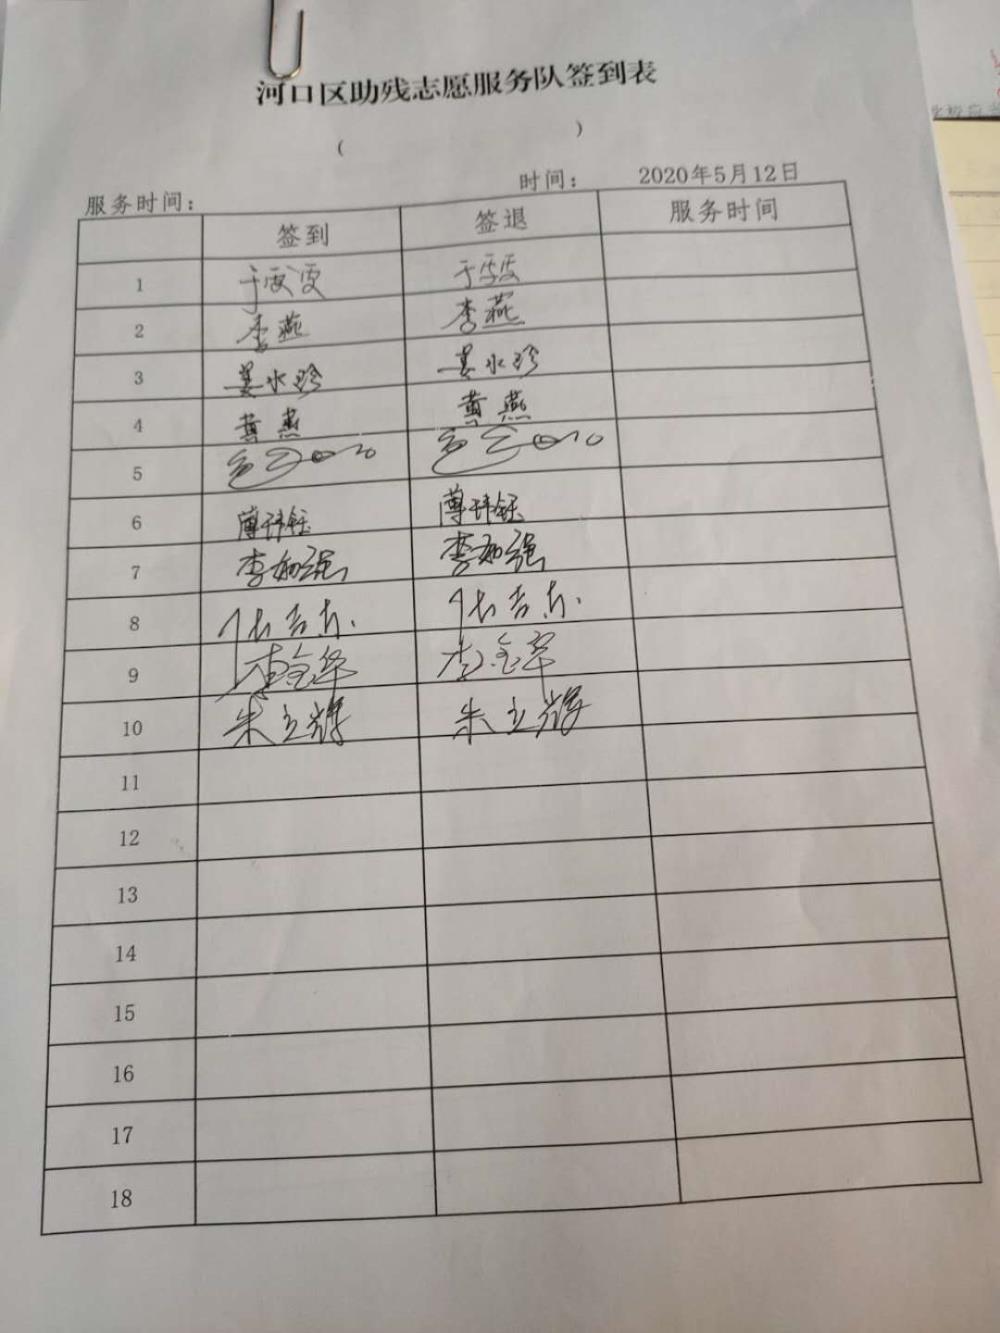 河口区助残志愿服务队签到表
( )
服务时间： 时间： 2020年5月12日
签到 签退 服务时间
1 于雯雯 于雯雯
2 李燕 李燕
3 姜水珍 姜水珍
4 黄燕 黄燕
5
6 薄玮钰 薄玮钰
7 李如强 李如强
8 张吉东 张吉东
9 李金华 李金华
10 朱立辉 朱立辉
11
12
13
14
15
16
17
18